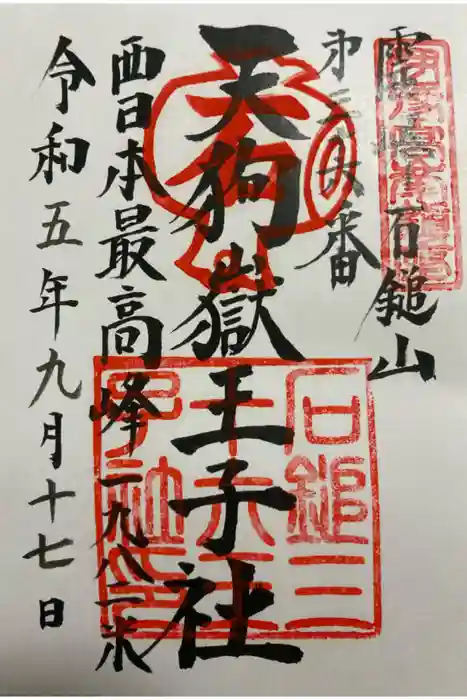 霊峰石鎚山
㐧三十六番
天狗嶽王子社
西日本最高峰一九八二米
令和五年九月十七日
石鎚三
十六王
子社印